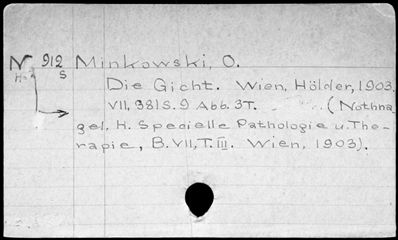 N 912 Minkowski, O.
S
Die Gicht. Wien, Hölder, 1903.
VII, 381 S. 9 Abb. 3T. (Nothna
gel, H. Specielle Pathologie u. The-
rapie, B. VII, T. III. Wien, 1903).